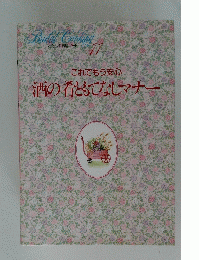 Bridal Cooking
17
これでもう安心
酒の肴ともてなしマナー